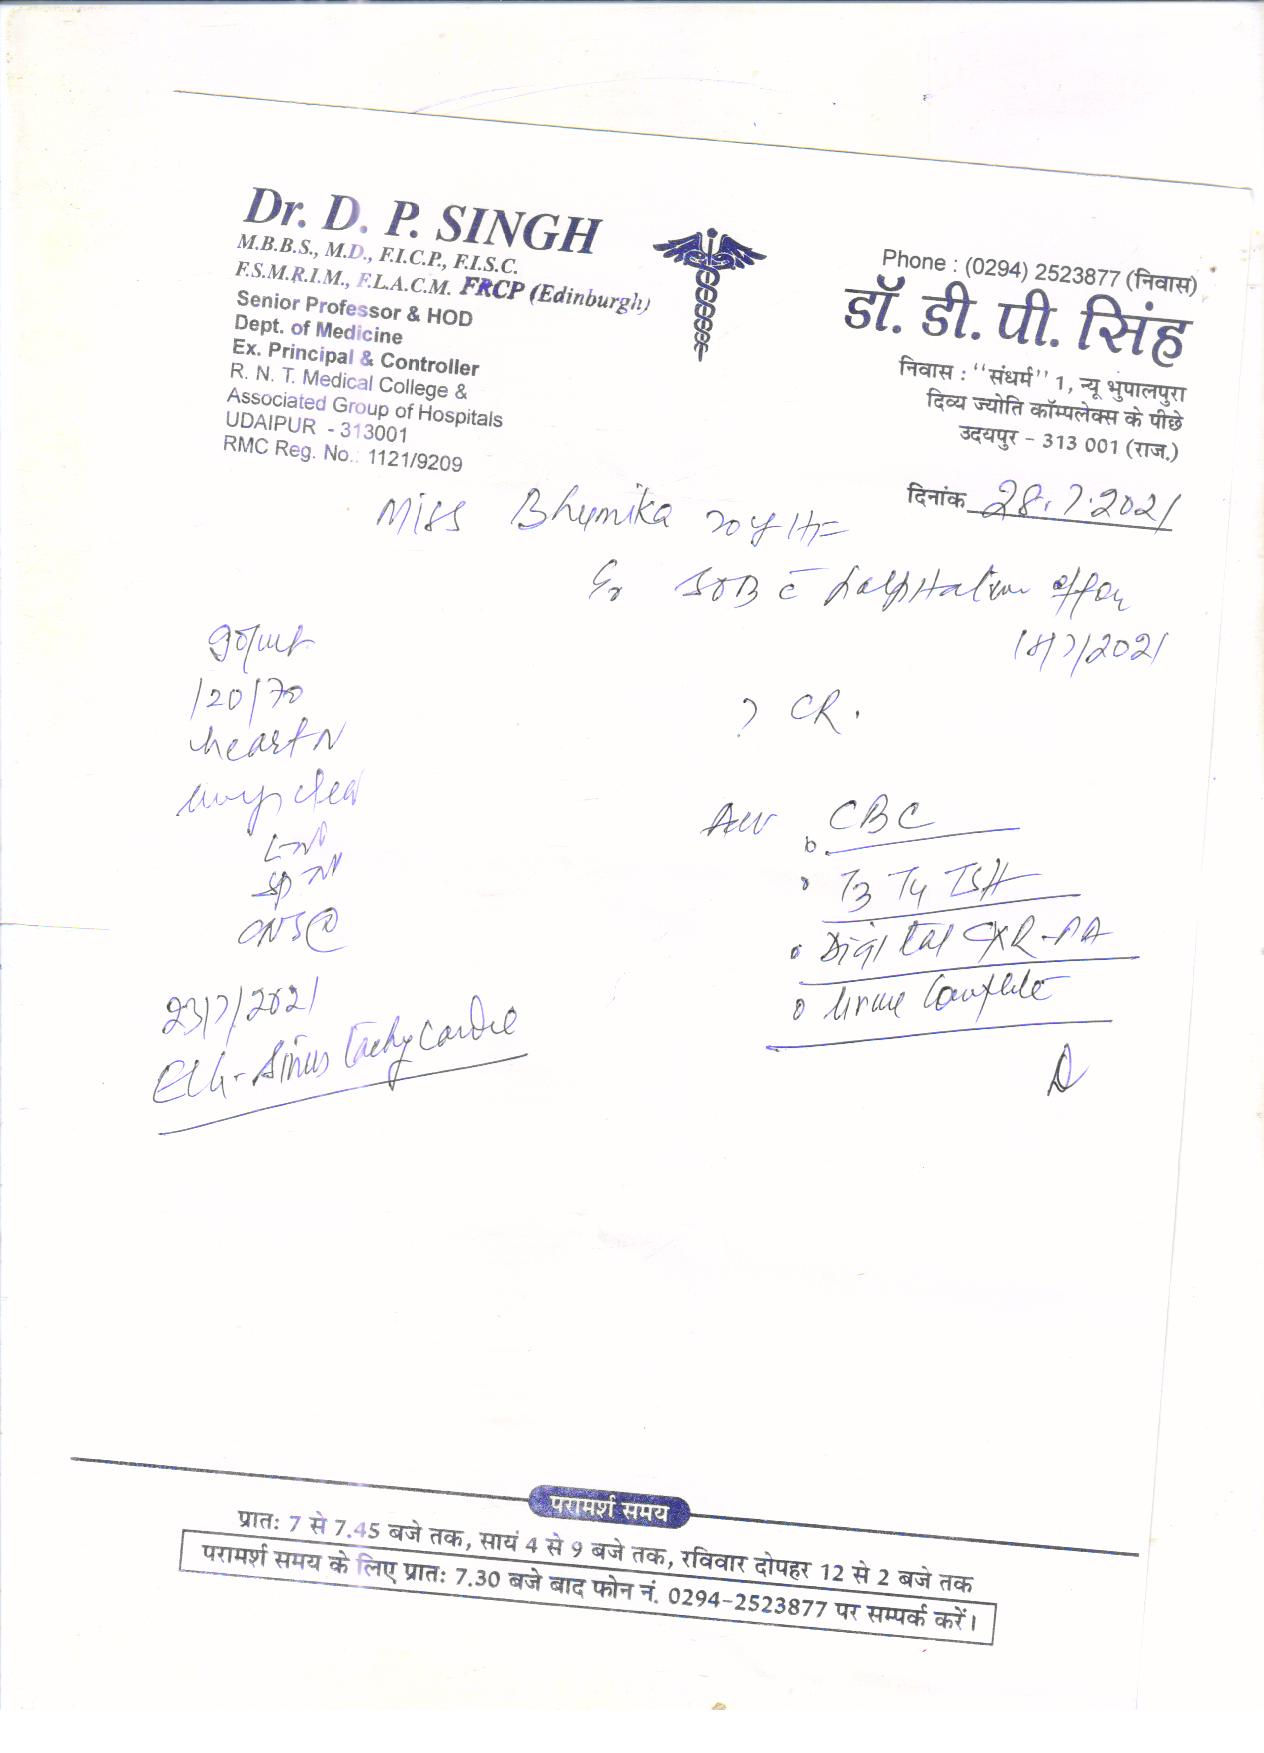 Dr. D. P. SINGH
M.B.B.S., M.D., F.I.C.P., F.I.S.C.
F.S.M.R.I.M., F.L.A.C.M. FRCP (Edinburgh)
Senior Professor & HOD
Dept. of Medicine
Ex. Principal & Controller
R. N. T. Medical College &
Associated Group of Hospitals
UDAIPUR - 313001
RMC Reg. No.: 1121/9209
Phone : (0294) 2523877 (निवास)
डॉ. डी. पी. सिंह
निवास : ''संधर्म'' 1, न्यू भुपालपुरा
दिव्य ज्योति कॉम्पलेक्स के पीछे
उदयपुर - 313 001 (राज.)
दिनांक 28.7.2021
Miss Bhumika 20y
SOB c palpitation
18/7/2021
120/70
heart N
clear
CNS
? CR.
CBC
T3 T4 TSH
Digital CXR-PA
Urine Complete
23/7/2021
ECG - Sinus tachycardia
परामर्श समय
प्रातः 7 से 7.45 बजे तक, सायं 4 से 9 बजे तक, रविवार दोपहर 12 से 2 बजे तक
परामर्श समय के लिए प्रातः 7.30 बजे बाद फोन नं. 0294-2523877 पर सम्पर्क करें।